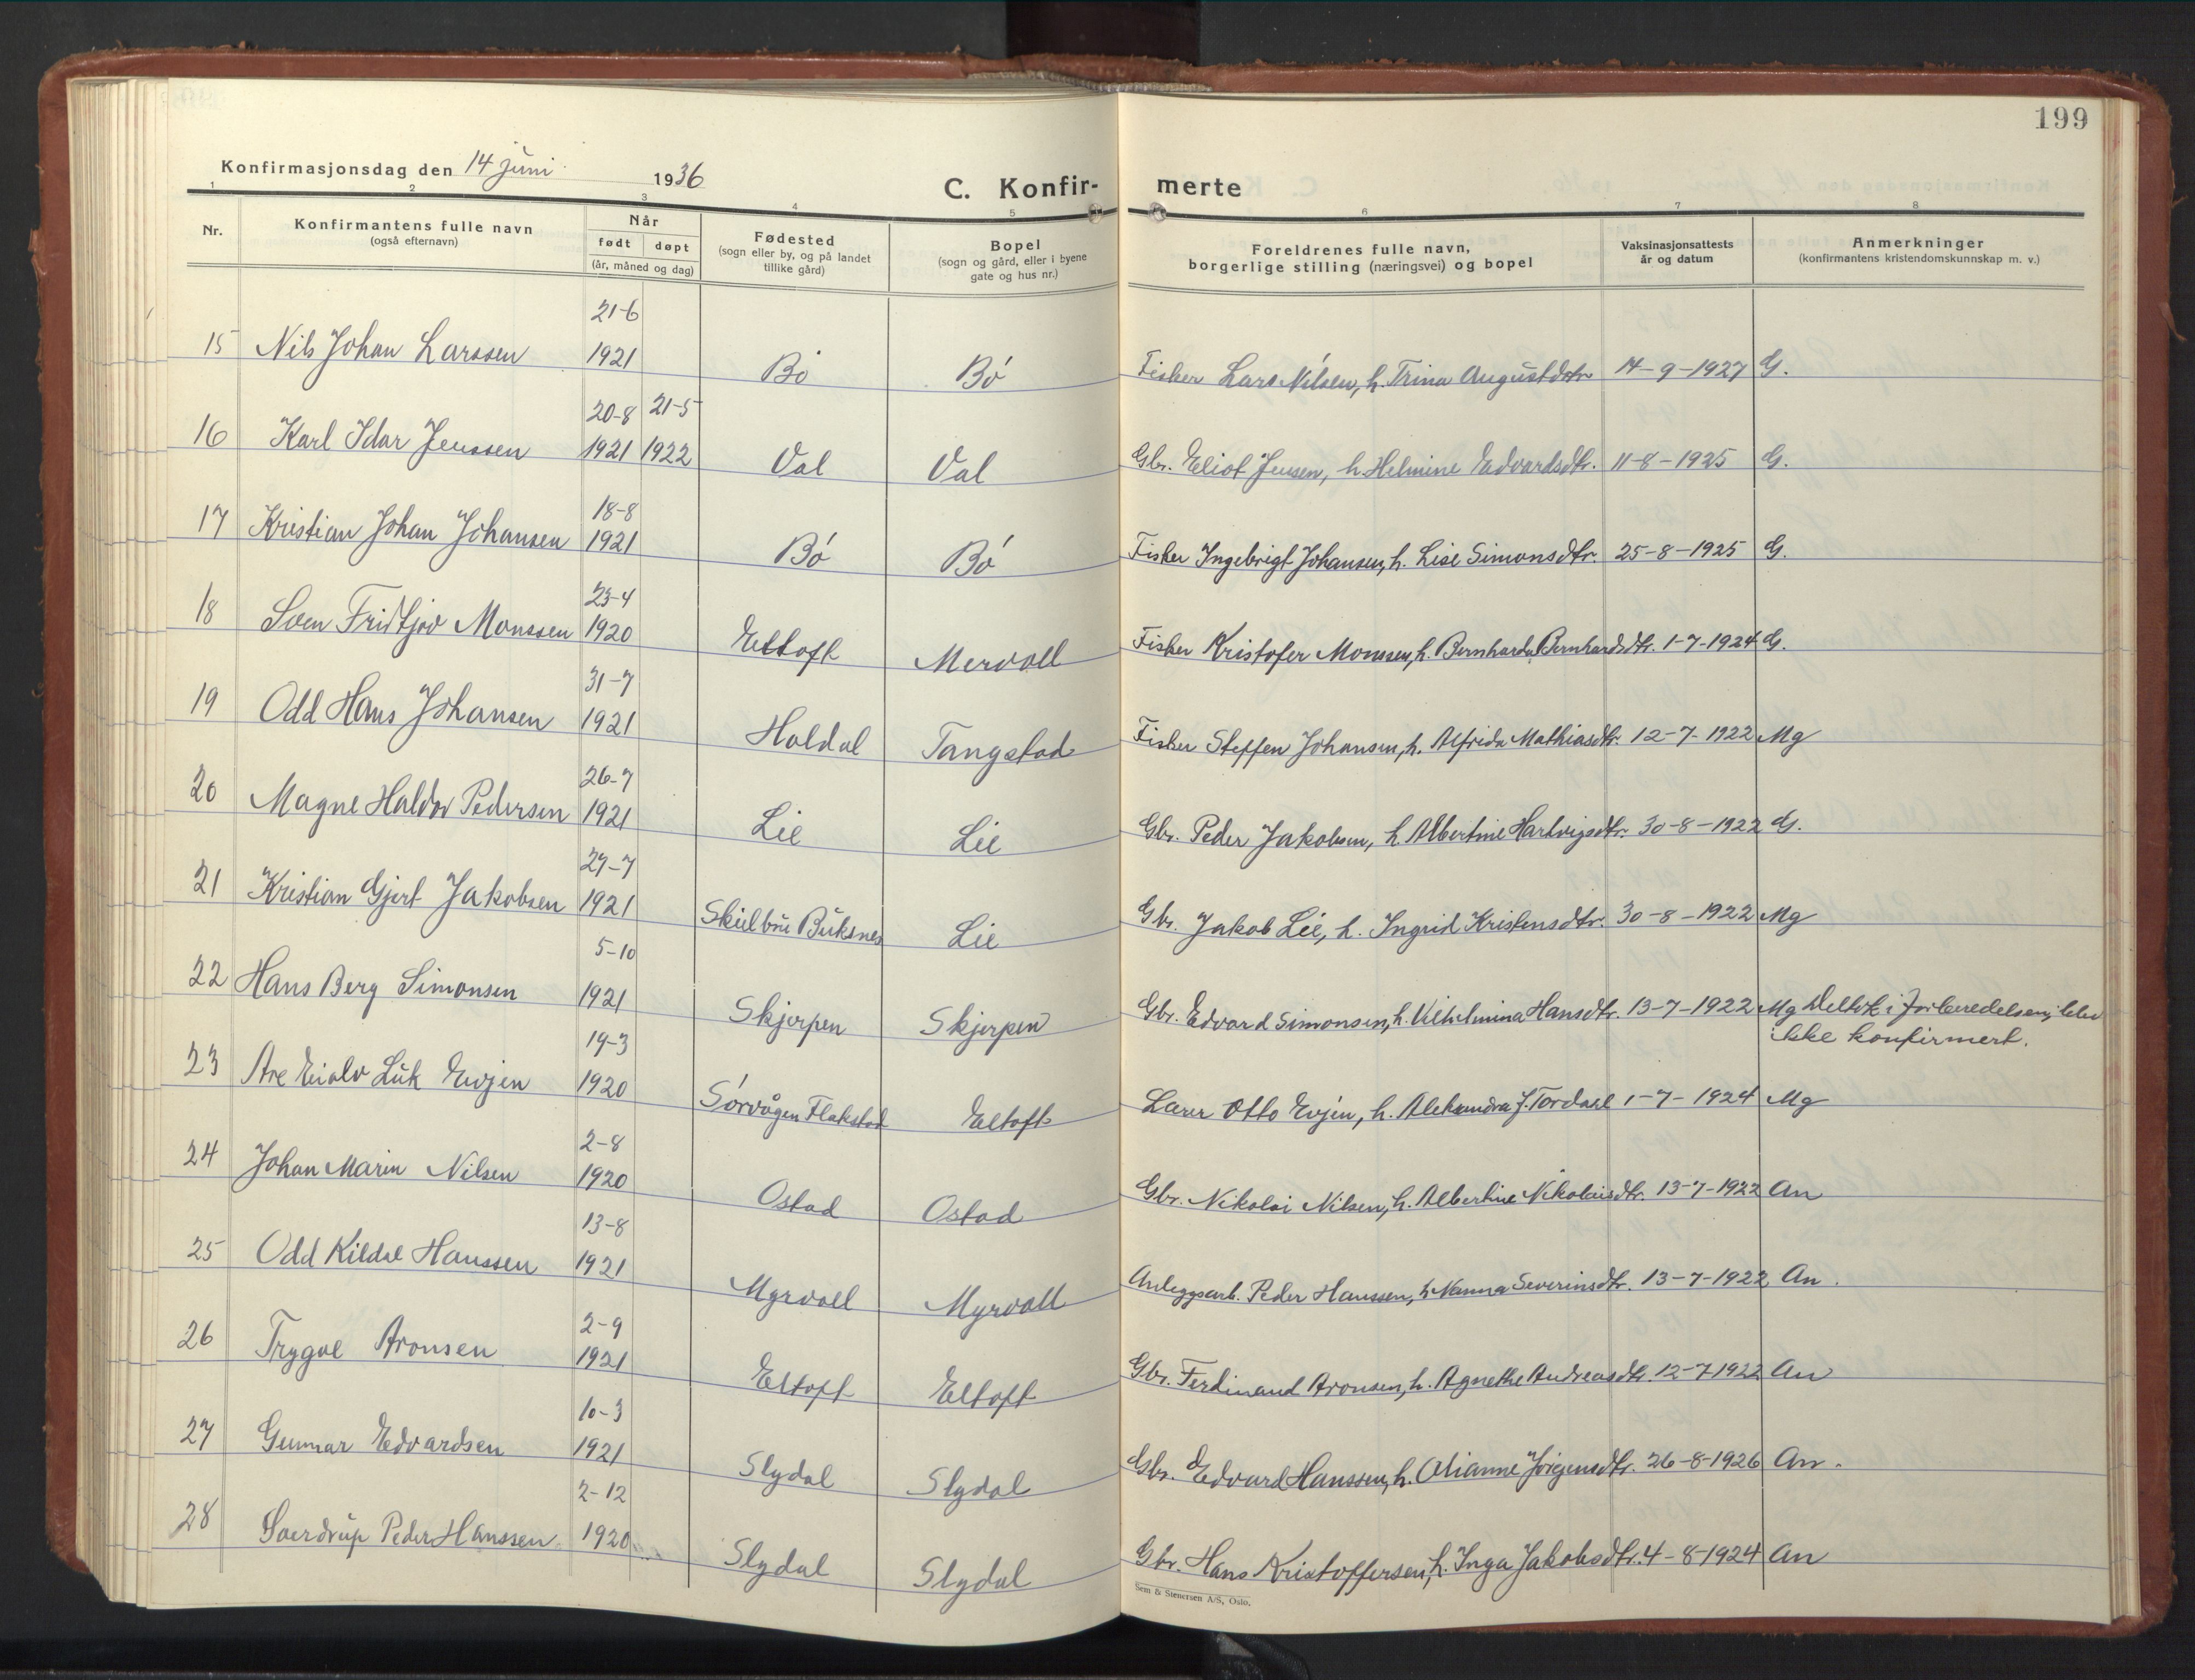 199
Konfirmasjonsdag den 14 juni 1936
C. Konfir- merte
1 2 3 4 5 6 7 8
Nr.
Konfirmantens fulle navn
(også efternavn)
Når
født døpt
(år, måned og dag)
Fødested
(sogn eller by, og på landet
tillike gård)
Bopel
(sogn og gård, eller i byene
gate og hus nr.)
Foreldrenes fulle navn,
borgerlige stilling (næringsvei) og bopel
Vaksinasjonsattests
år og datum
Anmerkninger
(konfirmantens kristendomskunnskap m. v.)
21-6
15 Nils Johan Larssen 1921 Bö Bö Fisker Lars Nilsen, h. Trina Augustdtr 14-9-1927 G.
20-8 21-5
16 Karl Idar Jenssen 1921 1922 Val Val Gbr. Eliot Jensen, h. Helmine Edvardsdtr. 11-8-1925 G.
18-8
17 Kristian Johan Johansen 1921 Bö Bö Fisker Ingebrigt Johansen, h. Lise Simonsdtr. 25-8-1925 G.
23-4
18 Sven Fridtjov Monssen 1920 Eltoft Mervoll Fisker Kristofer Monssen, h. Bernharda Bernhardsdtr. 1-7-1924 G.
31-7
19 Odd Hans Johansen 1921 Haldal Tangstad Fisker Steffen Johansen, h. Alfrida Mathiasdtr. 12-7-1922 Mg
26-7
20 Magne Haldor Pedersen 1921 Lie Lie Gbr. Peder Jakobsen, h. Albertine Hartvigsdtr. 30-8-1922 G.
27-7
21 Kristian Gjert Jakobsen 1921 Skulbru Buksnes Lie Gbr. Jakob Lie, h. Ingrid Kristensdtr. 30-8-1922 Mg
5-10
22 Hans Berg Simonsen 1921 Skjerpen Skjerpen Gbr. Edvard Simonsen, h. Vilhelmina Hansdtr. 13-7-1922 Mg Deltok i forberedelsen, blev
ikke konfirmert.
19-3
23 Are Eialv Luk Evjen 1920 Sörvågen Flakstad Eltoft Lærer Otto Evjen, h. Aleksandra J. Tordasl 1-7-1924 Mg
2-8
24 Johan Marin Nilsen 1920 Ostad Ostad Gbr. Nikolai Nilsen, h. Albertine Nikolaisdtr. 13-7-1922 An
13-8
25 Odd Kildal Hanssen 1921 Myrvoll Myrvoll Anleggsarb. Peder Hanssen, h. Nanna Severinsdtr. 13-7-1922 An.
2-9
26 Trygve Aronsen 1921 Eltoft Eltoft Gbr. Ferdinand Aronsen, h. Agnethe Andreasdtr. 12-7 1922 An
10-3
27 Gunnar Edvardsen 1921 Slydal Slydal Gbr. Edvard Hanssen, h. Olianne Jörgensdtr. 26-8-1926 An.
2-12
28 Sverdrup Peder Hanssen 1920 Slydal Slydal Gbr. Hans Kristoffersen, h. Inga Jakobsdtr. 4-8-1924 An
Sem & Stenersen A/S, Oslo.